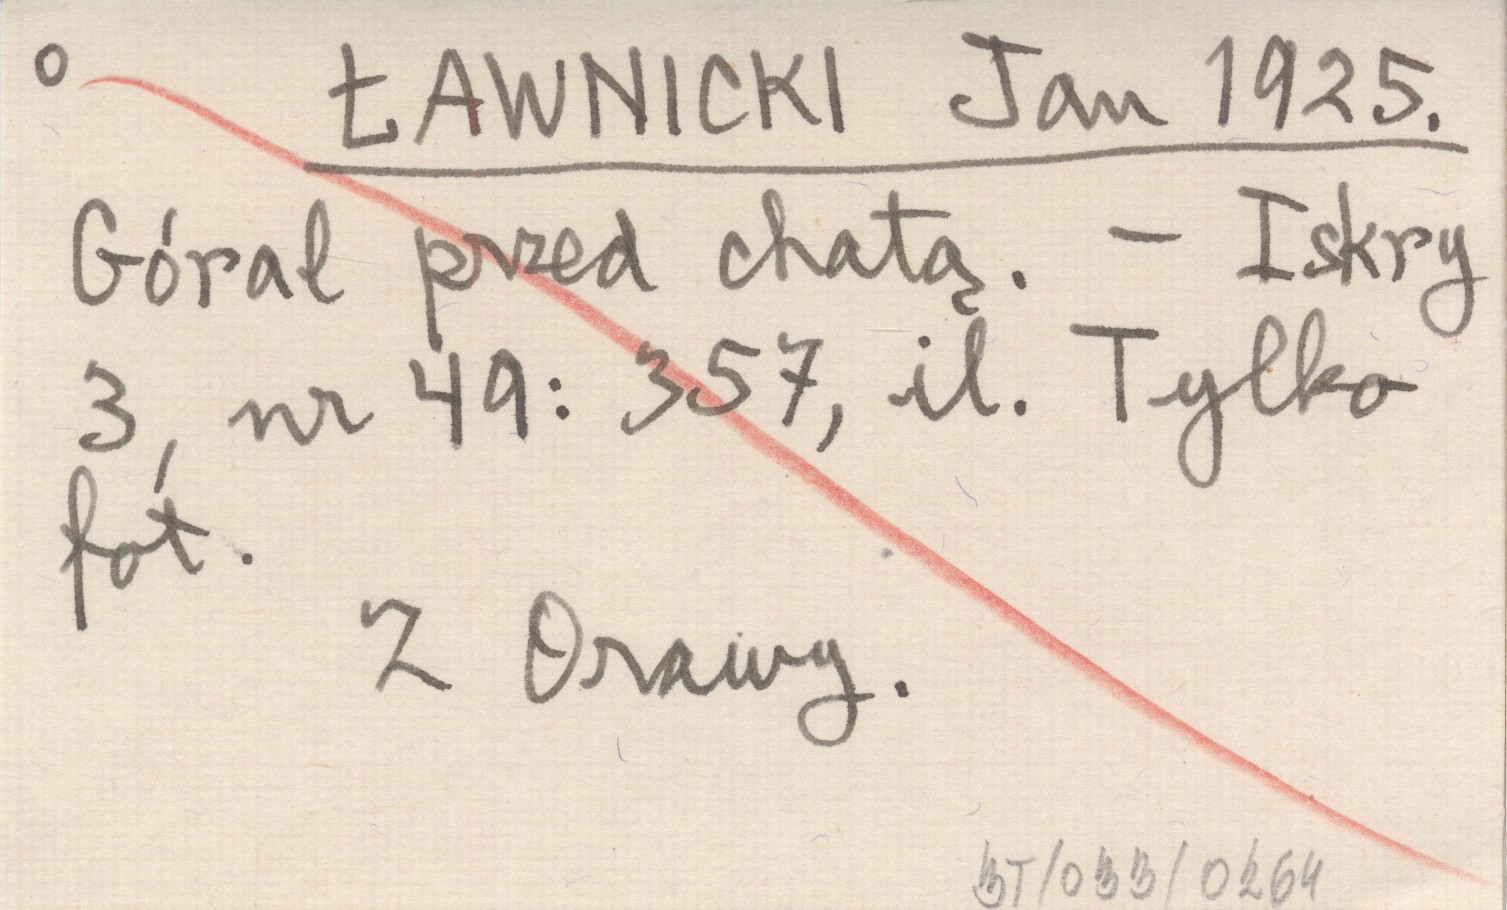 o ŁAWNICKI Jan 1925.
Góral przed chatą. – Iskry
3, nr 49: 357, il. Tylko
fot.
Z Orawy.
BT/033/0264